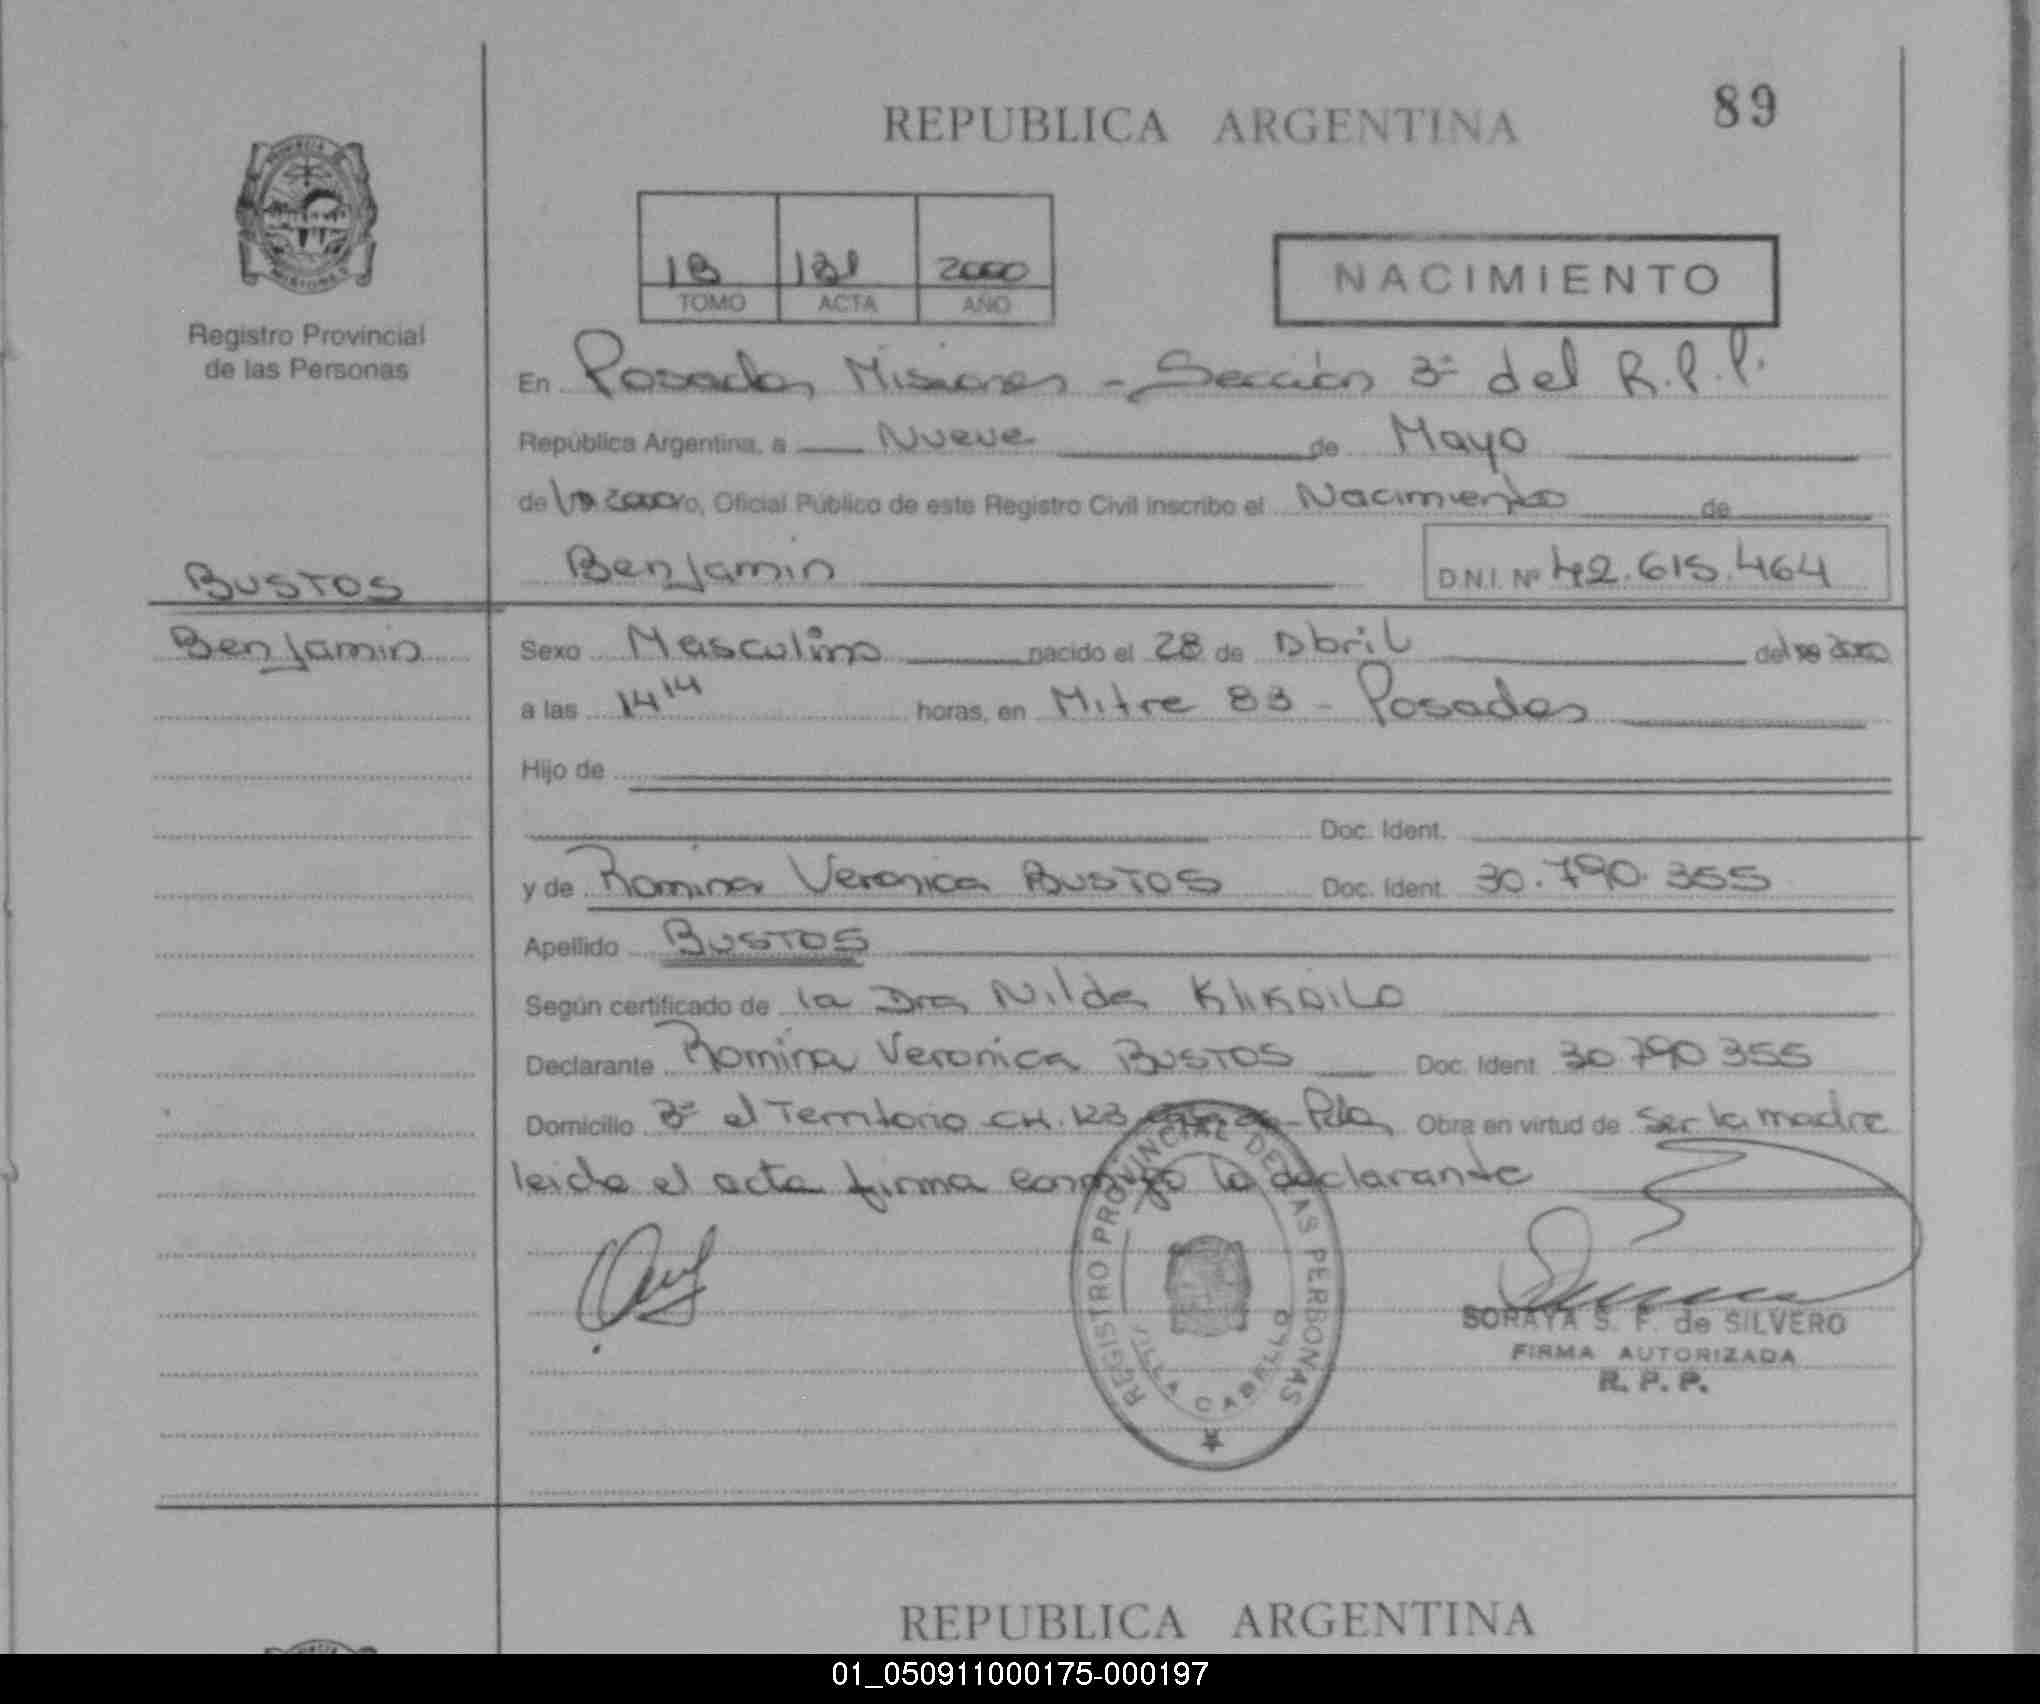 89
REPUBLICA ARGENTINA
PROVINCIA DE
MISIONES
Registro Provincial
de las Personas
1B 181 2000
TOMO ACTA AÑO
NACIMIENTO
En Posadas, Misiones - Sección 3ª del R.P.P.
República Argentina, a Nueve de Mayo
de 2000 Oficial Público de este Registro Civil inscribo el Nacimiento de
BUSTOS
Benjamin D.N.I. Nº 42.615.464
Benjamin
Sexo Masculino nacido el 28 de Abril del 2000
a las 14 14 horas, en Mitre 83 - Posadas
Hijo de
Doc. Ident.
y de Romina Veronica BUSTOS Doc. Ident. 30.790.355
Apellido BUSTOS
Según certificado de la Dra Nilda
Declarante Romina Veronica BUSTOS Doc. Ident. 30.790.355
Domicilio 3ª el Territorio CH. 123 Pdas, Obra en virtud de ser la madre
leida el acta firma conmigo la declarante
REGISTRO PROVINCIAL DE LAS PERSONAS
VILLA CABELLO
SORAYA S. F. de SILVERO
FIRMA AUTORIZADA
R. P. P.
REPUBLICA ARGENTINA
01_050911000175-000197